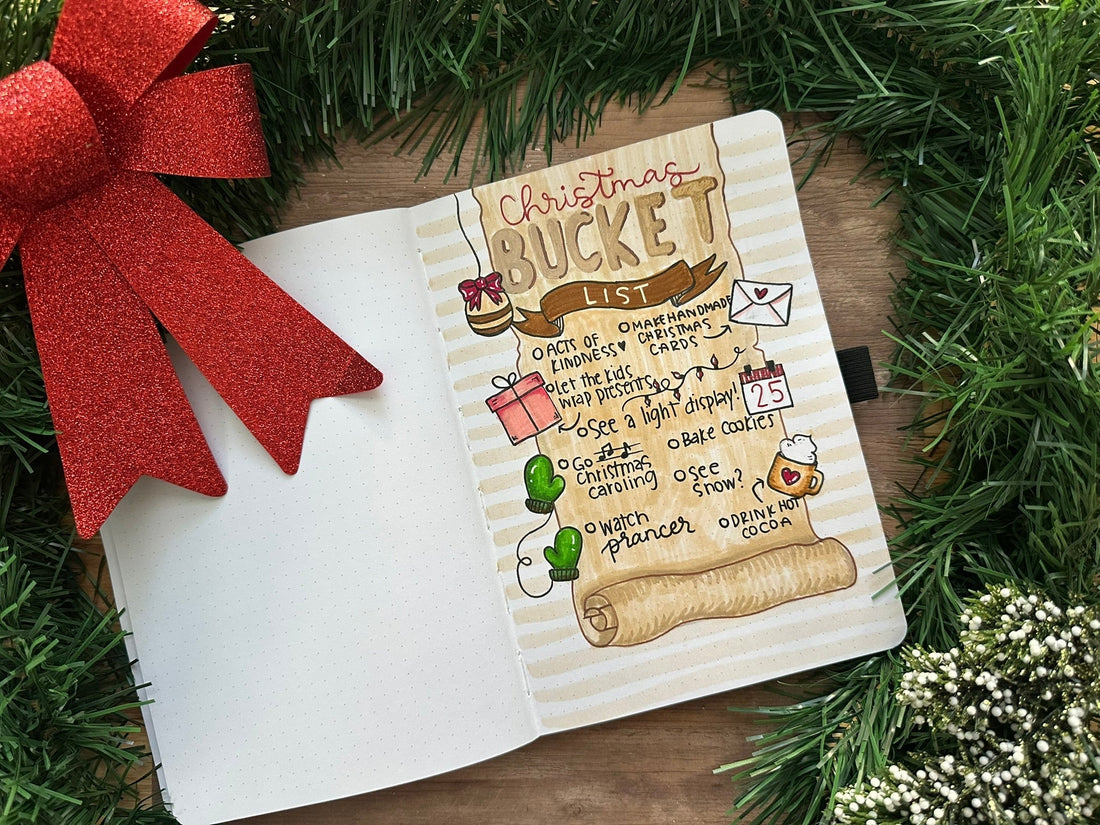 Christmas
BUCKET
LIST
O ACTS OF
KINDNESS♥
O MAKE HANDMADE
CHRISTMAS
CARDS
O Let the kids
wrap presents
O See a light display!
25
O Bake cookies
O Go
christmas
caroling
O see
snow?
O watch
prancer
O DRINK HOT
COCOA